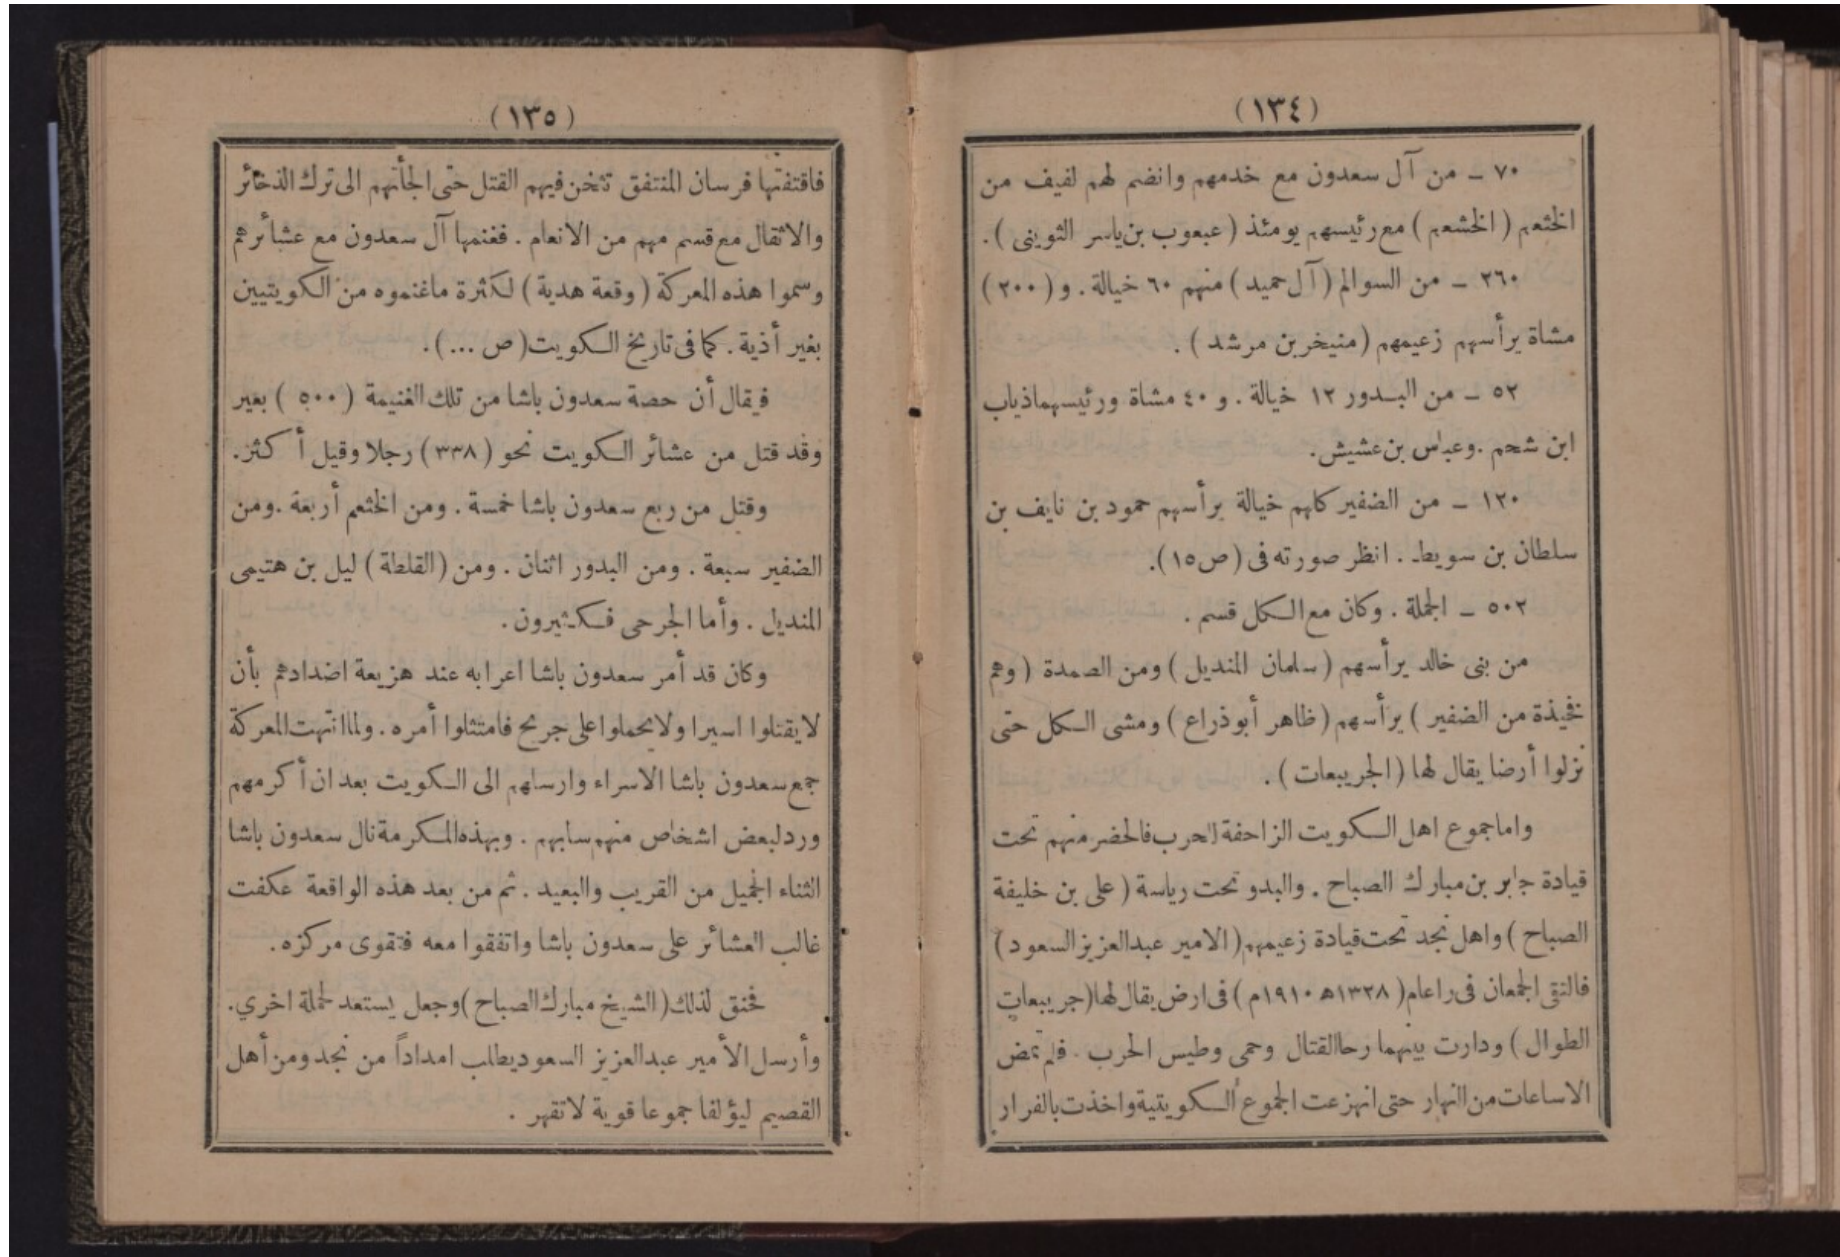 (١٣٤)
٧٠ ـ من آل سعدون مع خدمهم وانضم لهم لفيف من
الخثعم ( الخشعم ) مع رئيسهم يومئذ ( عبعوب بن ياسر الثويني ) .
٢٦٠ ـ من السوالم ( آل حميد ) منهم ٦٠ خيالة . و ( ٢٠٠ )
مشاة يرأسهم زعيمهم ( منيخر بن مرشد ) .
٥٢ ـ من البدور ١٢ خيالة . و ٤٠ مشاة ورئيسهما ذياب
ابن شحم . وعباس بن عشيش .
١٢٠ ـ من الضفير كلهم خيالة يرأسهم حمود بن نايف بن
سلطان بن سويط . انظر صورته في ( ص ١٥ ) .
٥٠٢ ـ الجملة . وكان مع الكل قسم .
من بنى خالد يرأسهم ( سلمان المنديل ) ومن الصمدة ( وهم
فخيذة من الضفير ) يرأسهم ( ظاهر أبو ذراع ) ومشى الكل حتى
نزلوا أرضا يقال لها ( الجريبعات ) .
واما جموع اهل الكويت الزاحفة لحرب فالحضر منهم تحت
قيادة جابر بن مبارك الصباح . والبدو تحت رياسة ( على بن خليفة
الصباح ) واهل نجد تحت قيادة زعيمهم ( الامير عبدالعزيز السعود )
فالتقى الجمعان فى راعام ( ١٣٢٨ه ١٩١٠م ) فى ارض يقال لها ( جريبعات
الطوال ) ودارت بينهما رحا القتال وحمى وطيس الحرب . فلم تمض
الاساعات من النهار حتى انهزعت الجموع الكويتية واخذت بالفرار
(١٣٥)
فاقتفتها فرسان المنتفق تثخن فيهم القتل حتى الجأتهم الى ترك الذخائر
والاثقال مع قسم مهم من الانعام . فغنمها آل سعدون مع عشائرهم
وسموا هذه المعركة ( وقعة هدية ) لكثرة ماغنموه من الكويتيين
بغير أذية . كما فى تاريخ الكويت ( ص ... ) .
فيقال أن حصة سعدون باشا من تلك الغنيمة ( ٥٠٠ ) بعير
وقد قتل من عشائر الكويت نحو ( ٣٣٨ ) رجلا وقيل أكثر .
وقتل من ربع سعدون باشا خمسة . ومن الخثعم أربعة . ومن
الضفير سبعة . ومن البدور اثنان . ومن ( القلطة ) ليل بن هتيمى
المنديل . وأما الجرحى فكثيرون .
وكان قد أمر سعدون باشا اعرابه عند هزيعة اضدادهم بأن
لا يقتلوا اسيرا ولا يحملوا على جريح فامتثلوا أمره . ولما انتهت المعركة
جمع سعدون باشا الاسراء وارسلهم الى الكويت بعد ان أكرمهم
ورد لبعض اشخاص منهم سلبهم . وبهذه المكرمة نال سعدون باشا
الثناء الجميل من القريب والبعيد . ثم من بعد هذه الواقعة عكفت
غالب العشائر على سعدون باشا واتفقوا معه فتقوى مركزه .
فخنق لذلك ( الشيخ مبارك الصباح ) وجعل يستعد لحملة اخري .
وأرسل الأمير عبدالعزيز السعود يطلب امداداً من نجد ومن أهل
القصيم ليؤلفا جموعا قوية لاتقهر .